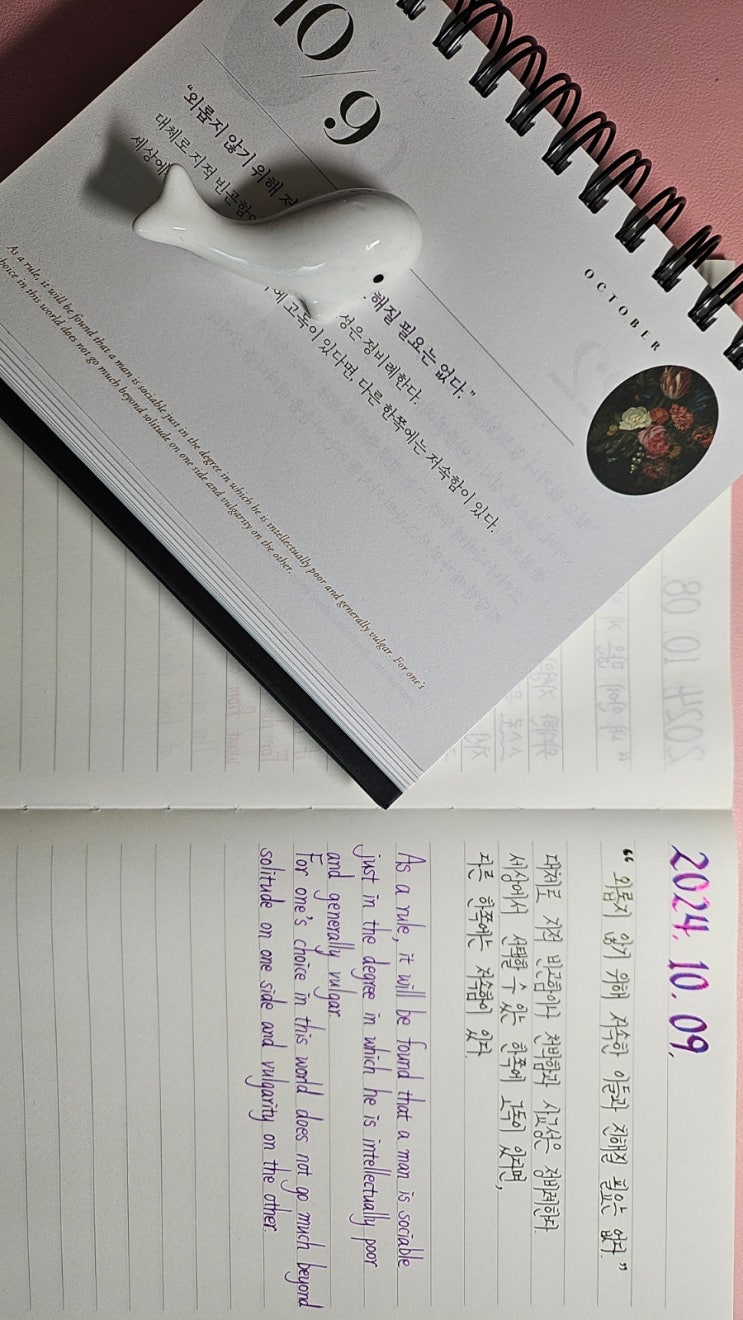 10/9
OCTOBER
“외롭지 않기 위해 저 해질 필요는 없다.”
대체로 지적 빈곤함이 성은 정비례한다.
세상에 에 고독이 있다면, 다른 한쪽에는 저속함이 있다.
As a rule, it will be found that a man is sociable just in the degree in which he is intellectually poor and generally vulgar For one's
choice in this world does not go much beyond solitude on one side and vulgarity on the other.
2024. 10. 09.
“ 외롭지 않기 위해 저속한 이들과 친해질 필요는 없다. ”
대체로 지적 빈곤함이나 천박함과 사교성은 정비례한다.
세상에서 선택할 수 있는 한쪽에 고독이 있다면,
다른 한쪽에는 저속함이 있다.
As a rule, it will be found that a man is sociable
just in the degree in which he is intellectually poor
and generally vulgar
For one's choice in this world does not go much beyond
solitude on one side and vulgarity on the other.